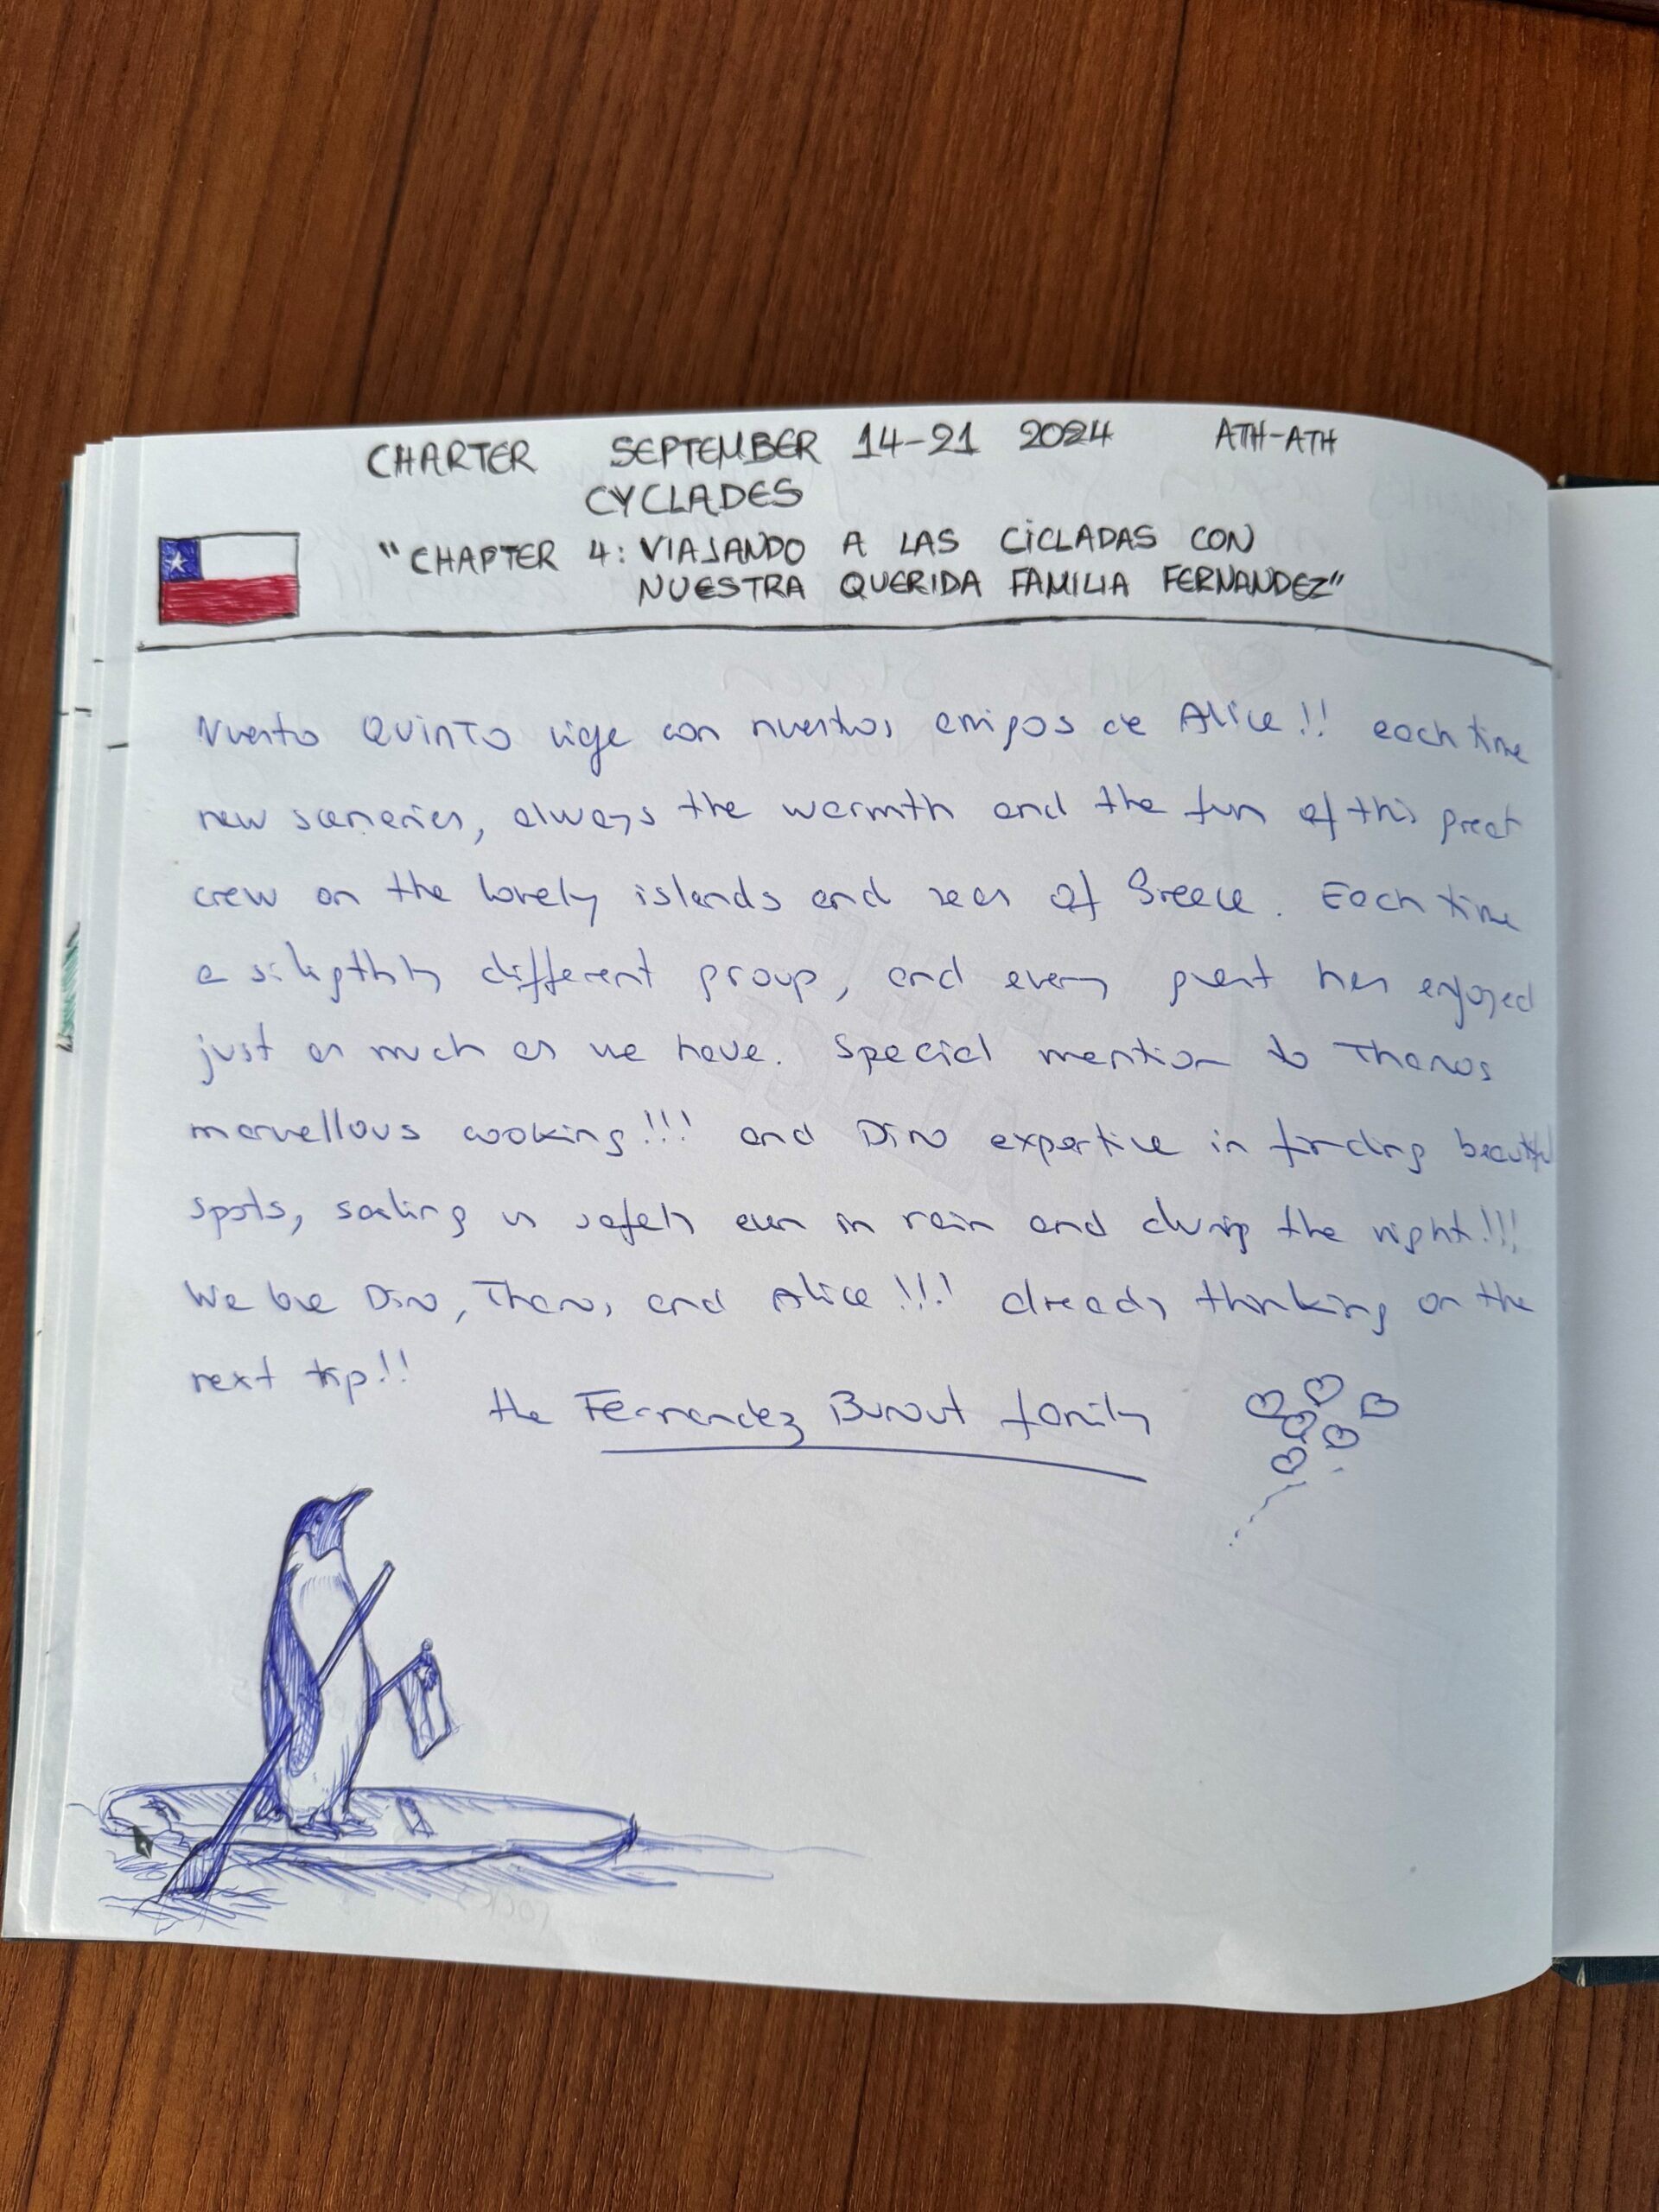 CHARTER SEPTEMBER 14-21 2024 ATH-ATH
CYCLADES
"CHAPTER 4: VIAJANDO A LAS CICLADAS CON
NUESTRA QUERIDA FAMILIA FERNANDEZ"
Nuestro QUINTO viaje con nuestros amigos de Alice!! each time
new sceneries, always the warmth and the fun of this great
crew on the lovely islands and seas of Greece. Each time
a sligthly different group, and every guest has enjoyed
just as much as we have. Special mention to Thanos
marvellous cooking!!! and Dino expertise in finding beautiful
spots, sailing us safely even in rain and during the night!!!
We love Dino, Thanos and Alice!!! already thinking on the
next trip!!
the Fernandez Bunout family